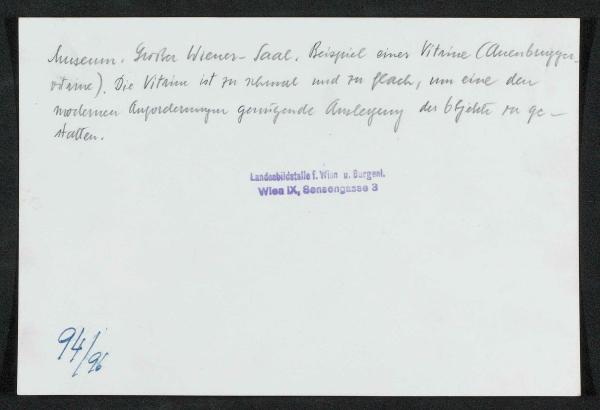 Museum. Großer Wiener-Saal. Beispiel einer Vitrine (Auenbrugger-
vitrine). Die Vitrine ist zu schmal und zu flach, um eine den
modernen Anforderungen genügende Auslegung der Objekte zu ge-
statten.
Landesbildstelle f. Wien u. Burgenl.
Wien IX, Sensengasse 3
94/96